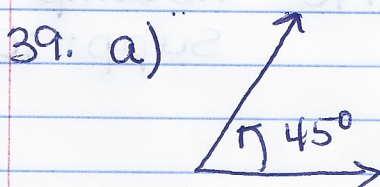 39. a)
45°